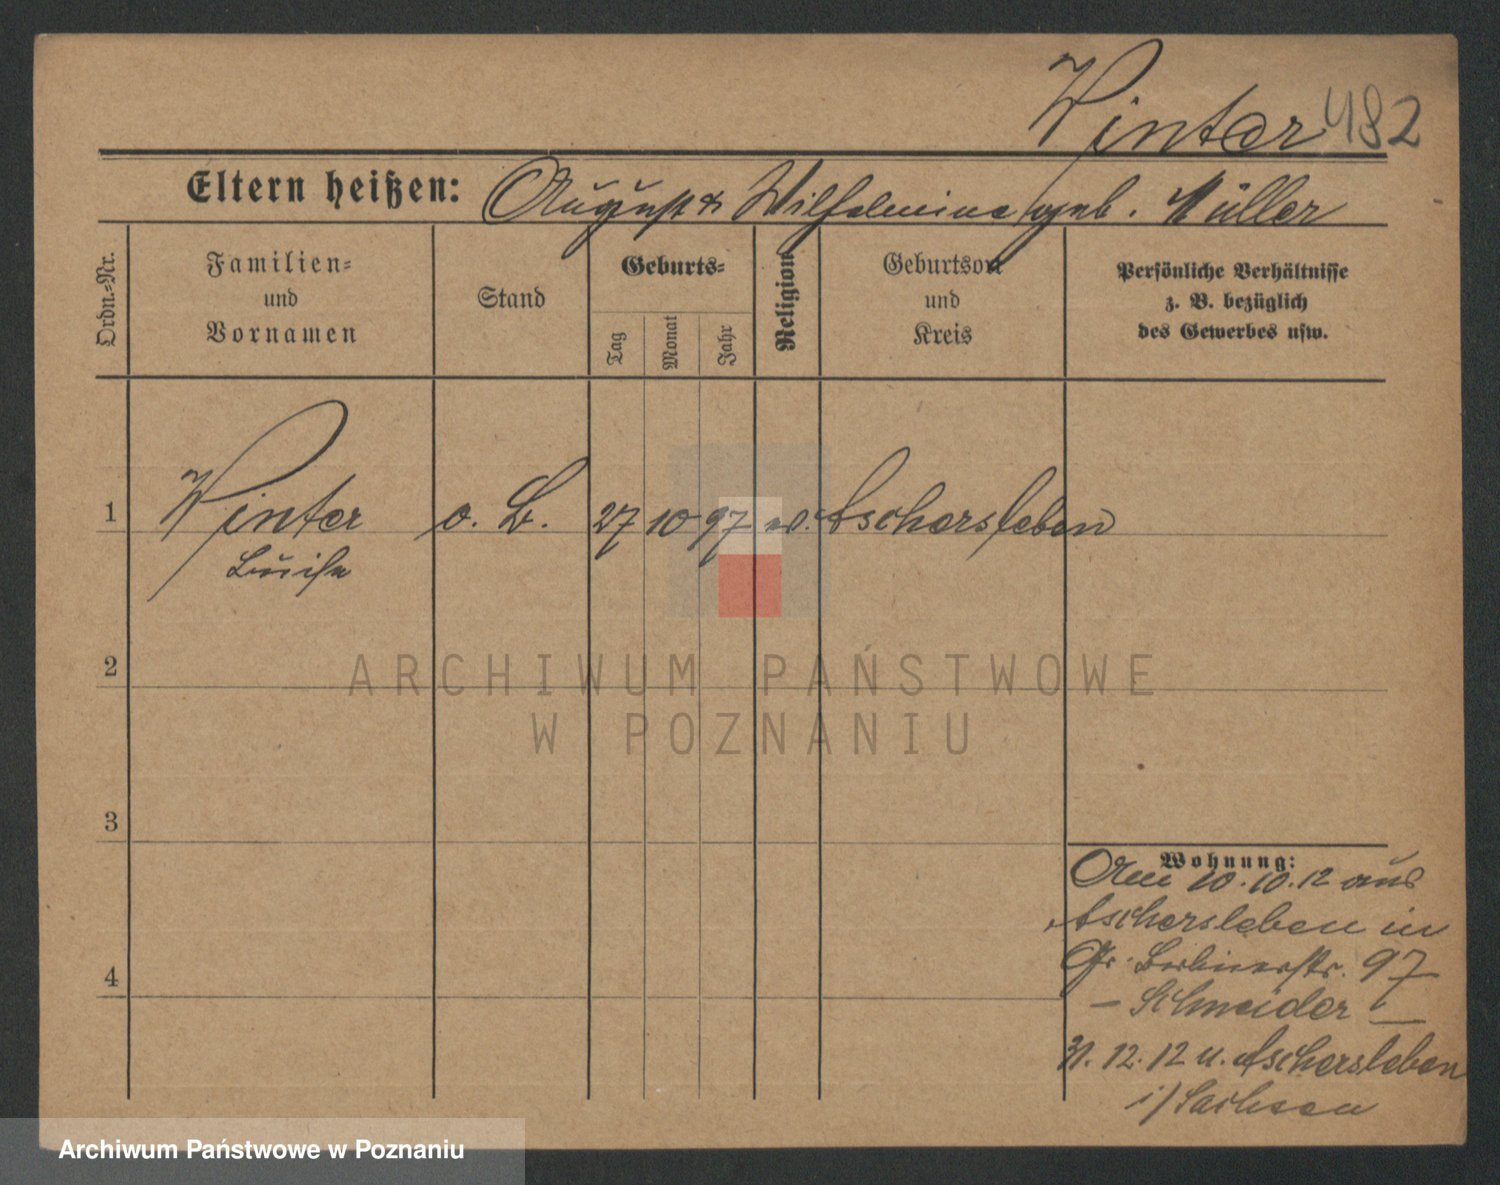 Winter 482
Eltern heißen: August & Wilhelmine geb. Müller
Ordn.=Nr.
Familien=
und
Vornamen
Stand
Geburts=
Tag
Monat
Jahr
Religion
Geburtsort
und
Kreis
Persönliche Verhältnisse
z. B. bezüglich
des Gewerbes usw.
1 Winter o. B. 27 10 97 ev. Aschersleben
Luise
2
ARCHIWUM PAŃSTWOWE
W POZNANIU
3
Wohnung:
Am 10.10.12 aus
Aschersleben in
Gr. Berlinerstr. 97
– Schneider –
31.12.12 n. Aschersleben
i/Sachsen
4
Archiwum Państwowe w Poznaniu